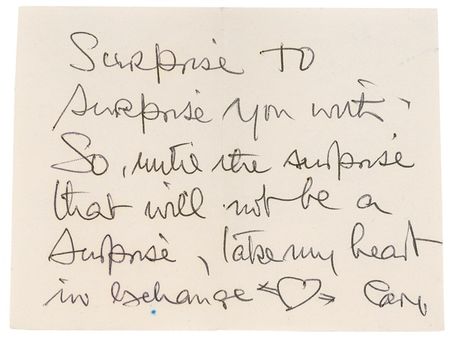 Surprise to
surprise you with.
So, until the surprise
that will not be a
surprise, take my heart
in exchange